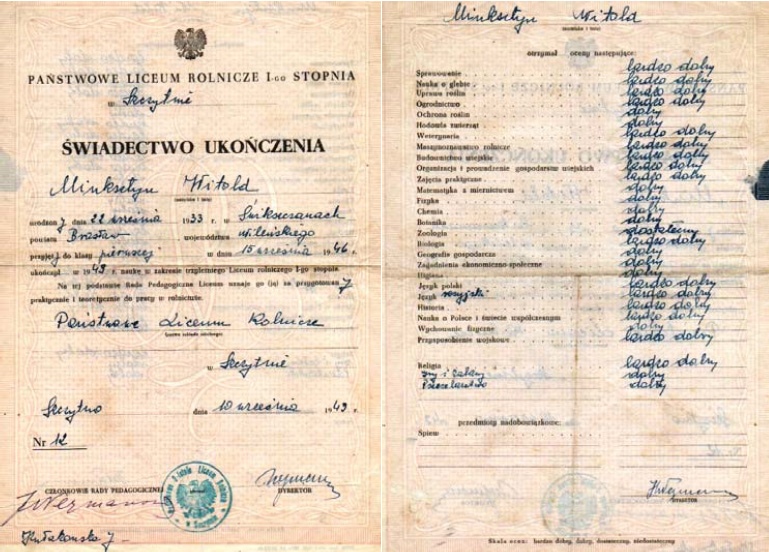 PAŃSTWOWE LICEUM ROLNICZE I-GO STOPNIA
w Szczytnie
ŚWIADECTWO UKOŃCZENIA
Minksztym Witold
(nazwisko i imię)
urodzony dnia 22 września 1933 r. w
powiatu Brasław województwa wileńskiego
przyjęty do klasy pierwszej w dniu 15 września 1946 r.
ukończył w 1949 r. naukę w zakresie trzyletniego Liceum rolniczego I-go stopnia.
Na tej podstawie Rada Pedagogiczna Liceum uznaje go (ją) za przygotowany
praktycznie i teoretycznie do pracy w rolnictwie.
Państwowe Liceum Rolnicze
w Szczytnie
Szczytno dnia 10 września 1949 r.
Nr 12
CZŁONKOWIE RADY PEDAGOGICZNEJ
DYREKTOR
Minksztym Witold
(nazwisko i imię)
otrzymał oceny następujące:
Sprawowanie bardzo dobry
Nauka o glebie bardzo dobry
Uprawa roślin bardzo dobry
Ogrodnictwo bardzo dobry
Ochrona roślin dobry
Hodowla zwierząt dobry
Weterynaria bardzo dobry
Maszynoznawstwo rolnicze dobry
Budownictwo wiejskie dobry
Organizacja i prowadzenie gospodarstw wiejskich bardzo dobry
Zajęcia praktyczne bardzo dobry
Matematyka z miernictwem dobry
Fizyka dobry
Chemia dobry
Botanika dobry
Zoologia dostateczny
Biologia bardzo dobry
Geografia gospodarcza dobry
Zagadnienia ekonomiczno-społeczne dobry
Higiena dobry
Język polski bardzo dobry
Język rosyjski bardzo dobry
Historia bardzo dobry
Nauka o Polsce i świecie współczesnym bardzo dobry
Wychowanie fizyczne dobry
Przysposobienie wojskowe bardzo dobry
Religia bardzo dobry
gry i zabawy dobry
Pszczelarstwo dobry
przedmioty nadobowiązkowe:
Śpiew
DYREKTOR
Skala ocen: bardzo dobry, dobry, dostateczny, niedostateczny